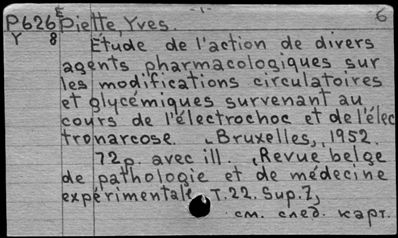 - 1 -
P626 E Piette, Yves. 6
Y 8 Etude de l'action de divers
agents pharmacologiques sur
les modifications circulatoires
et glycémiques survenant au
cours de l'électrochoc et de l'élec
tronarcose. Bruxelles, 1952.
72p. avec ill. Revue belge
de pathologie et de médecine
expérimentale, T.22. Sup. 7,
см. след. карт.